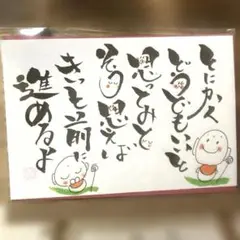 とにかく
どうでもいいと
思ってみと
そう思えば
きっと前に
進めるよ